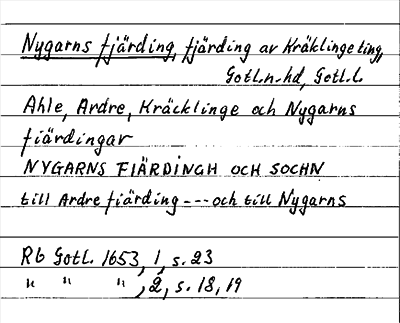 Nygarns fjärding, fjärding av Kräklingeting,
Gotl.n.hd, Gotl.l.
Ahle, Ardre, Kräcklinge och Nygarns
fiärdingar
NYGARNS FIÄRDINGH OCH SOCHN
till Ardre fiärding --- och till Nygarns
Rb Gotl. 1653, 1, s. 23
" " ", 2, s. 18, 19